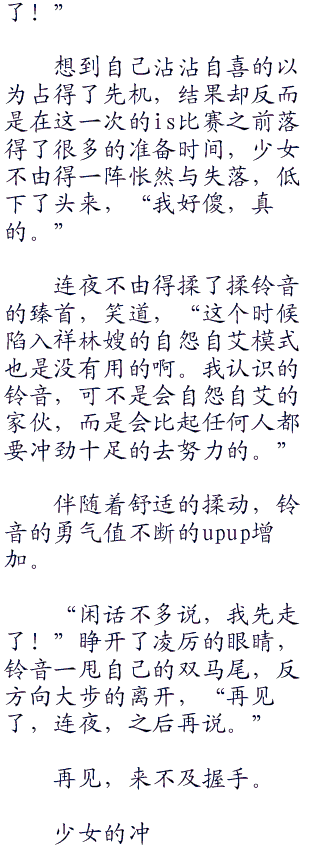 了！”
想到自己沾沾自喜的以
为占得了先机，结果却反而
是在这一次的is比赛之前落
得了很多的准备时间，少女
不由得一阵怅然与失落，低
下了头来，“我好傻，真
的。”
连夜不由得揉了揉铃音
的臻首，笑道，“这个时候
陷入祥林嫂的自怨自艾模式
也是没有用的啊。我认识的
铃音，可不是会自怨自艾的
家伙，而是会比起任何人都
要冲劲十足的去努力的。”
伴随着舒适的揉动，铃
音的勇气值不断的upup增
加。
“闲话不多说，我先走
了！”睁开了凌厉的眼睛，
铃音一甩自己的双马尾，反
方向大步的离开，“再见
了，连夜，之后再说。”
再见，来不及握手。
少女的冲